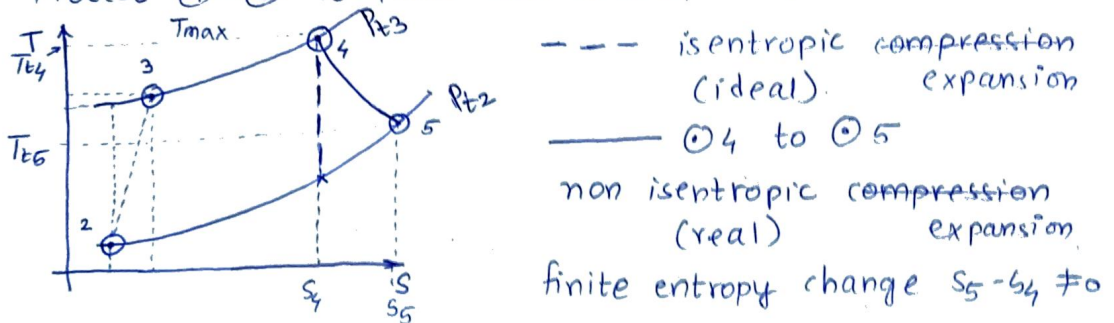 T
Tt4
Tmax
Pt3
4
3
Pt2
Tt5
5
2
S4
S
S5
--- isentropic compression
(ideal). expansion
—— ⊙4 to ⊙5
non isentropic compression
(real) expansion
finite entropy change S5-S4 ≠0